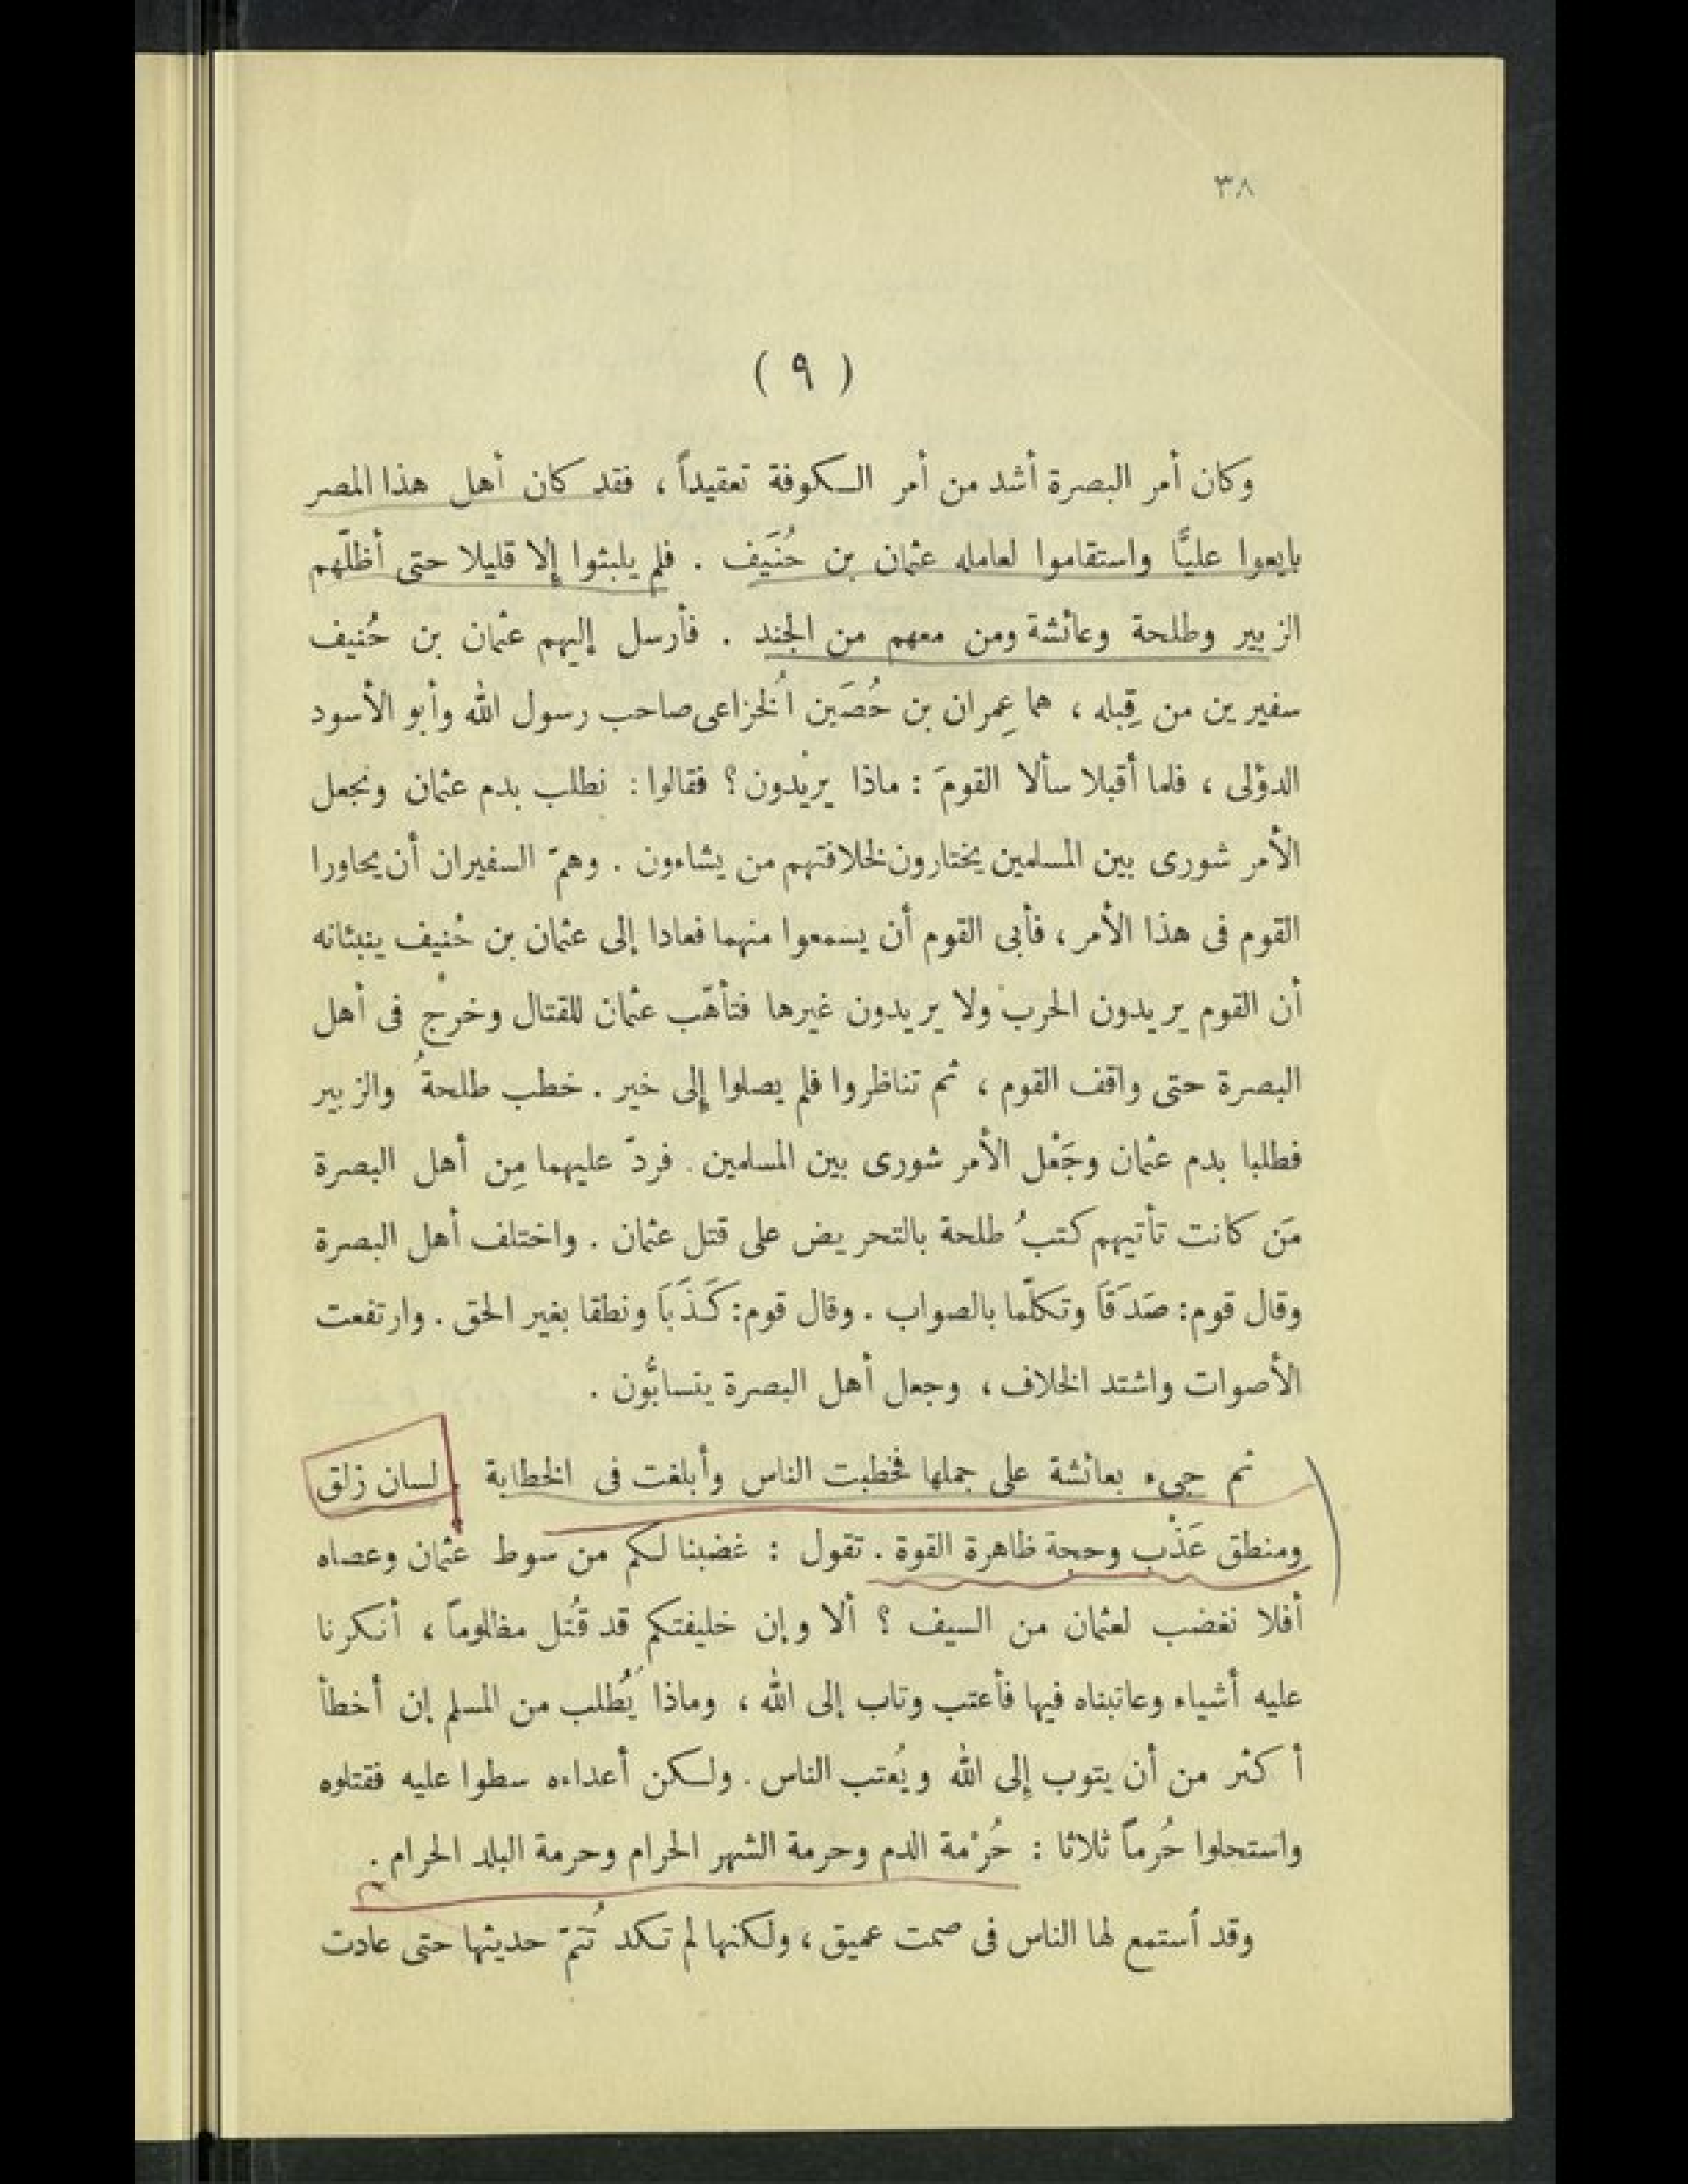 ٣٨
( ٩ )
وكان أمر البصرة أشد من أمر الكوفة تعقيداً ، فقد كان أهل هذا المصر
بايعوا عليًّا واستقاموا لعامله عثمان بن حُنَيف . فلم يلبثوا إلا قليلا حتى أظلّهم
الزبير وطلحة وعائشة ومن معهم من الجند . فأرسل إليهم عثمان بن حُنيف
سفيرين من قِبله ، هما عِمران بن حُصَين اُلخزاعى صاحب رسول الله وأبو الأسود
الدؤلى ، فلما أقبلا سألا القومَ : ماذا يريدون ؟ فقالوا : نطلب بدم عثمان ونجعل
الأمر شورى بين المسلمين يختارون لخلافتهم من يشاءون . وهمّ السفيران أن يحاورا
القوم فى هذا الأمر ، فأبى القوم أن يسمعوا منهما فعادا إلى عثمان بن حُنيف ينبئانه
أن القوم يريدون الحرب ولا يريدون غيرها فتأهّب عثمان للقتال وخرج فى أهل
البصرة حتى واقف القوم ، ثم تناظروا فلم يصلوا إلى خير . خطب طلحةُ والزبير
فطلبا بدم عثمان وجَعْل الأمر شورى بين المسلمين . فردّ عليهما مِن أهل البصرة
مَن كانت تأتيهم كتبُ طلحة بالتحريض على قتل عثمان . واختلف أهل البصرة
وقال قوم : صَدَقَا وتكلّما بالصواب . وقال قوم : كَذَبَا ونطقا بغير الحق . وارتفعت
الأصوات واشتد الخلاف ، وجعل أهل البصرة يتسابُّون .
ثم جىء بعائشة على جملها فخطبت الناس وأبلغت فى الخطابة . لسان زلق
ومنطق عَذْب وحجة ظاهرة القوة . تقول : غضبنا لكم من سوط عثمان وعصاه
أفلا نغضب لعثمان من السيف ؟ ألا وإن خليفتكم قد قُتل مظلوماً ، أنكرنا
عليه أشياء وعاتبناه فيها فأعتب وتاب إلى الله ، وماذا يُطلب من المسلم إن أخطأ
أكثر من أن يتوب إلى الله ويُعتب الناس . ولكن أعداءه سطوا عليه فقتلوه
واستحلوا حُرماً ثلاثا : حُرْمة الدم وحرمة الشهر الحرام وحرمة البلد الحرام .
وقد اُستمع لها الناس فى صمت عميق ، ولكنها لم تكد تُتمّ حديثها حتى عادت